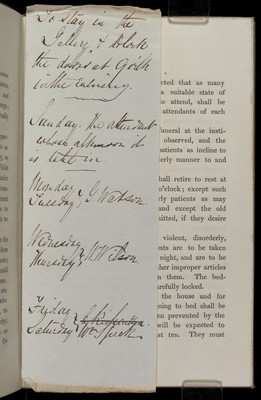 To stay in the
Gallery & block
the doors at 9 o'clk
in the evening.
Sunday. The attendant
whose afternoon it
is
Monday
Tuesday } J. Watson.
Wednesday
Thursday } W. Wilson
Friday
Saturday } Wm
cted that as many
a suitable state of
to attend, shall be
attendants of each
funeral at the insti-
observed, and the
patients as incline to
derly manner to and
hall retire to rest at
o'clock; except such
rly patients as may
and except the old
mitted, if they desire
violent, disorderly,
nts are to be taken
night, and are to be
ther improper articles
n them. The bed-
arefully locked.
the house and for
ning to bed shall be
en prevented by the
will be expected to
at ten. They must